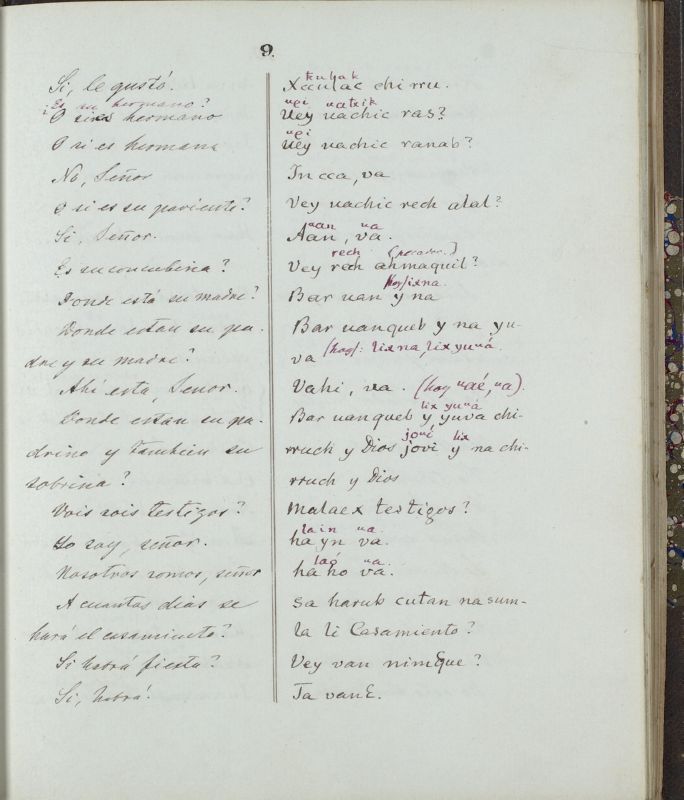 9.
Si, le gustó.
Es su hermano?
¿O si es hermano
O si es hermana
No, Señor
O si es su pariente?
Si, Señor.
Es su concubina?
Donde está su madre?
Donde estan su pa-
dre y su madre?
Ahi esta, Senor.
Donde estan su pa-
drino y tambien su
sobrina?
Vois sois testigos?
Yo soy, señor.
Nosotros somos, señor
A cuantos dias se
hará el casamiento?
Si habrá fiesta?
Si, habrá.
Xcculac chi rru.
uei uatxik
Uey uachic ras?
uei
Uey uachic ranab?
In cca, va
Vey uachic rech alal?
uan ua
Aan, va.
rech
Vey rech ahmaquil?
(hoy) lix na.
Bar uan y na
Bar uanqueb y na yu-
va (hoy): lix na, lix yuuá.
Vahi, va. (hoy uaé, ua).
lix yuuá
Bar uanqueb y yuva chi-
rruch y Dios jovi y na chi-
joui lix
rruch y Dios
Malaex testigos?
lain ua
ha yn va.
laó ua
ha ho va.
Sa harub cutan na sum-
la li Casamiento?
Vey van nimƐque?
Ta vanƐ.